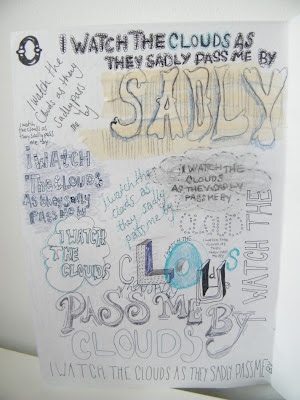 I WATCH THE CLOUDS AS
THEY SADLY PASS ME BY
SADLY
I watch the
clouds as they
sadly pass
me by
I watch
the clouds as
they sadly pass
me by
I WATCH
THE CLOUDS
AS THEY SADLY
PASS ME BY
I WATCH THE
CLOUDS
AS THEY SADLY
PASS ME BY
I watch the
clouds as
they sadly
pass me by
I WATCH
THE
CLOUDS
CLOUDS
I WATCH THE
CLOUDS
PASS ME BY
CLOUDS
I WATCH THE CLOUDS AS THEY SADLY PASS ME BY